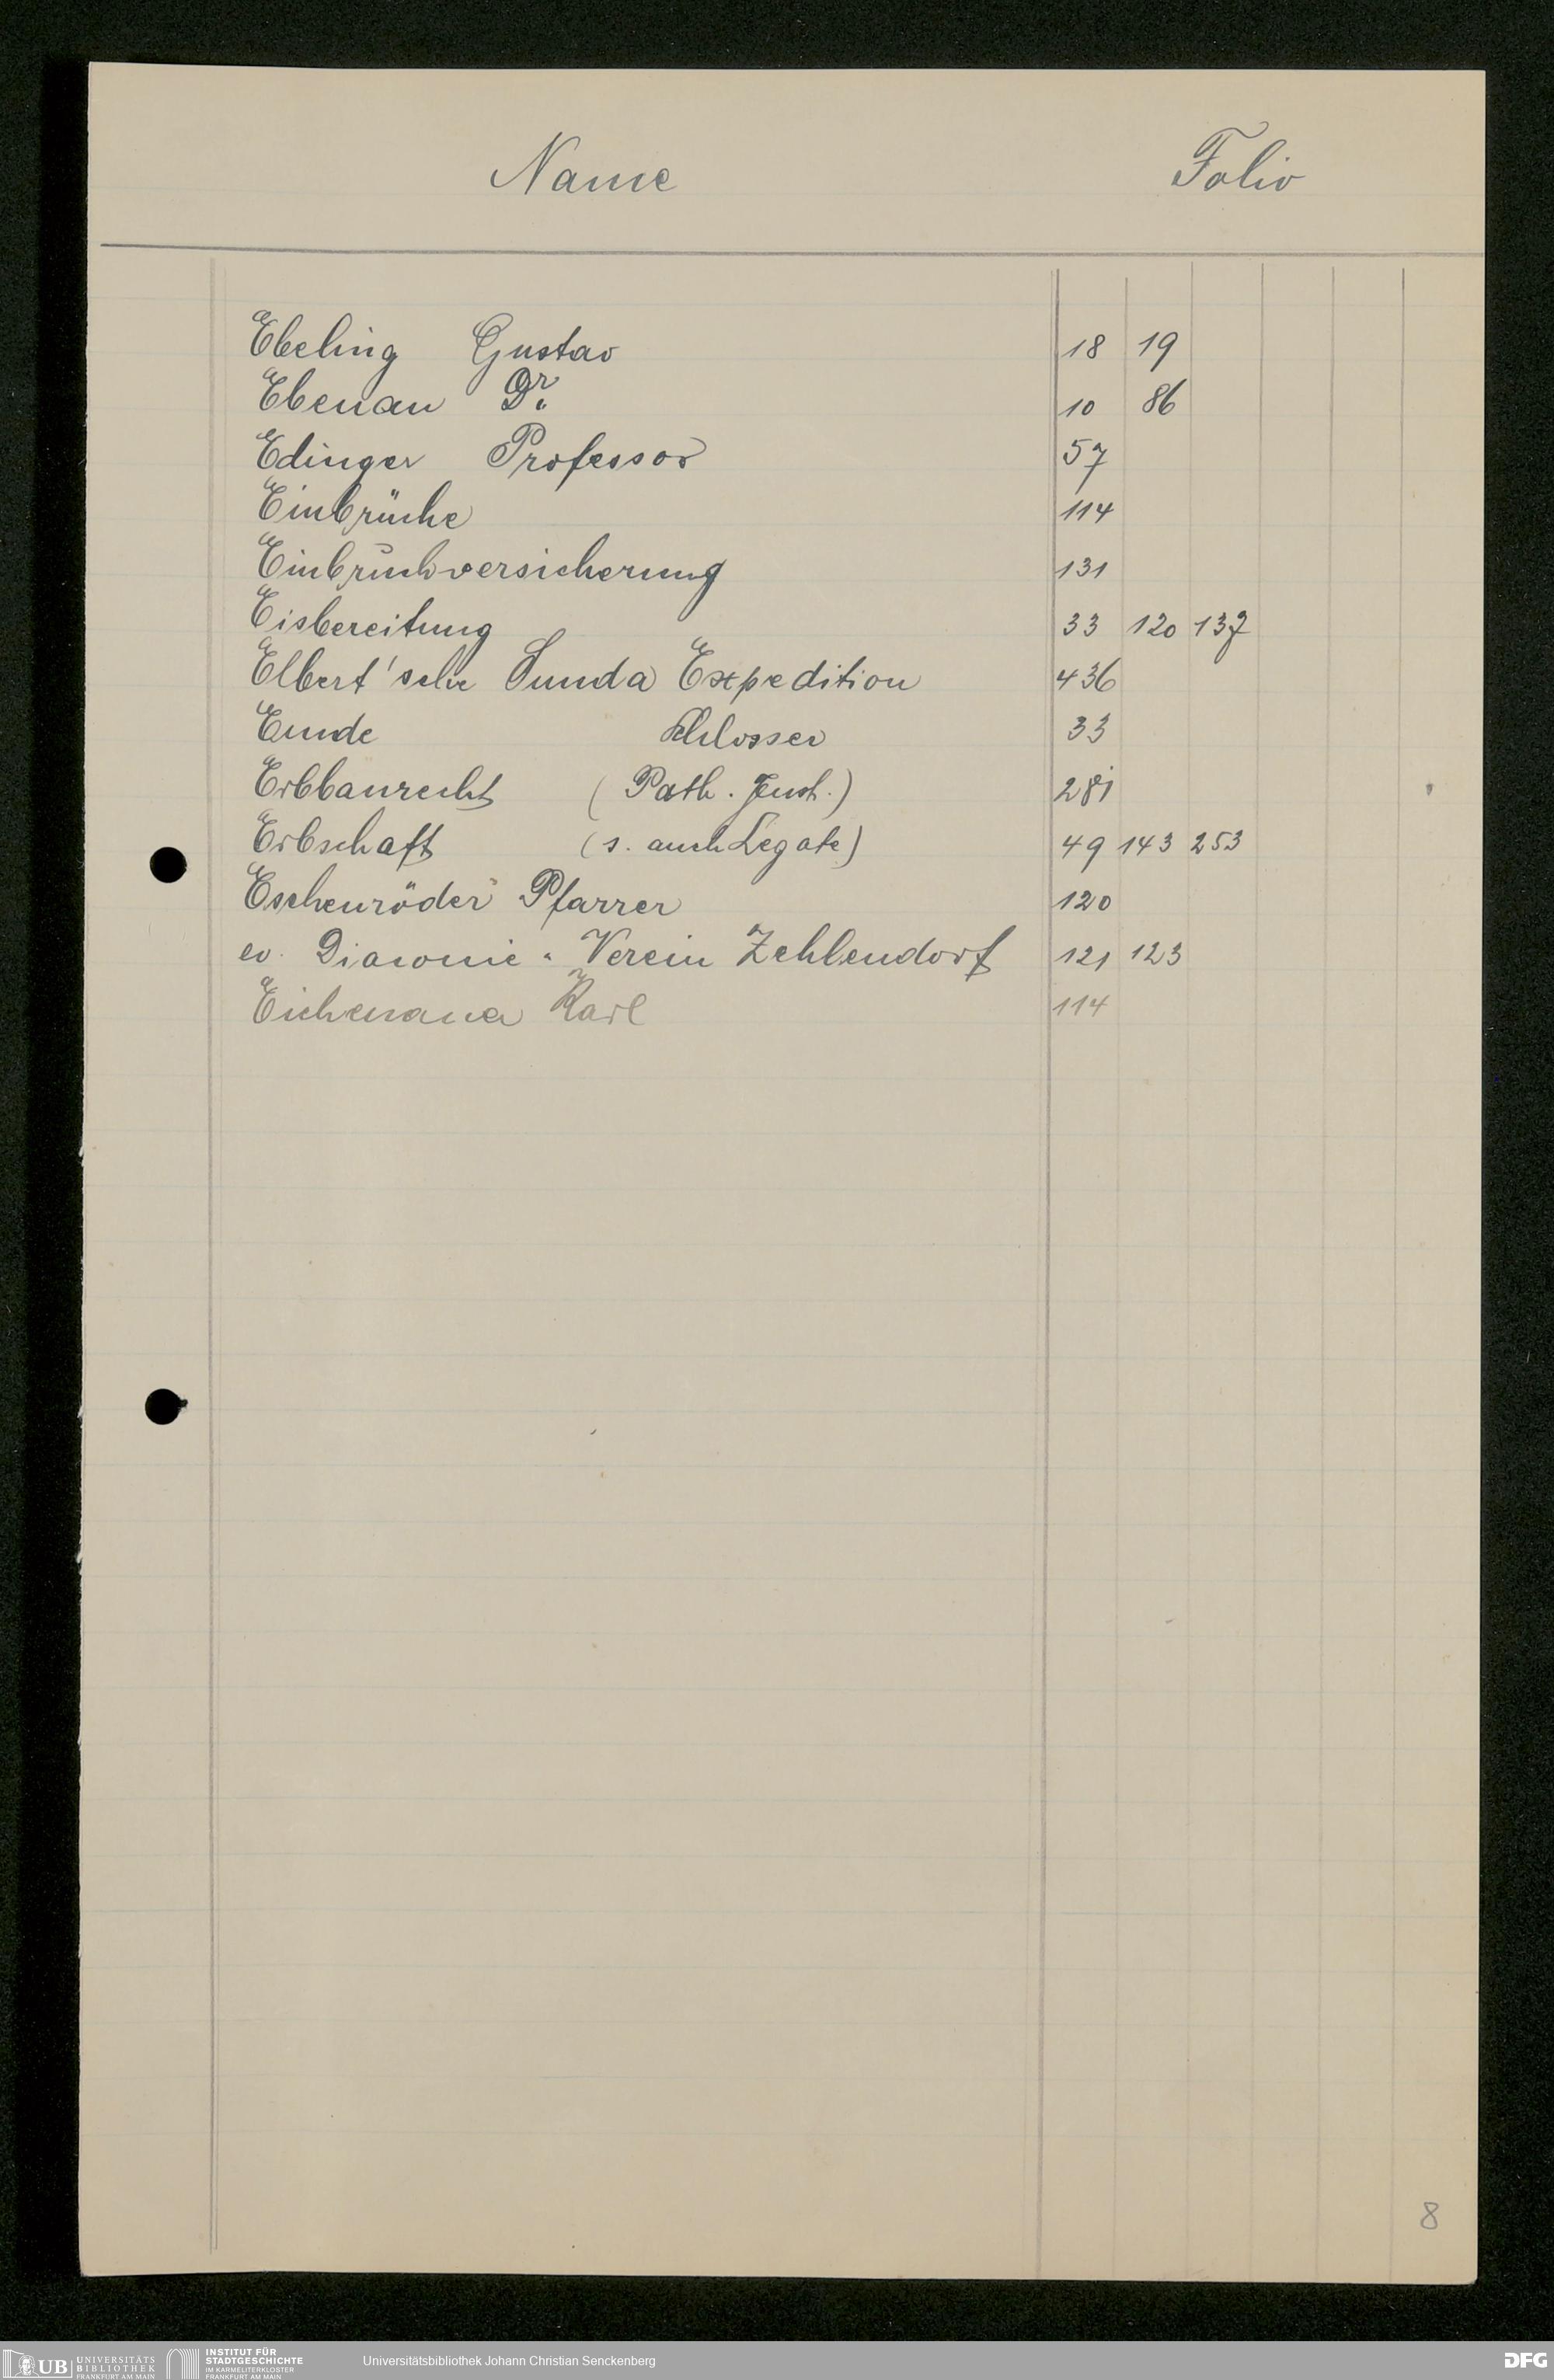 Name Folio
Ebeling Gustav 18 19
Ebenau Dr. 10 86
Edinger Professor 57
Einbrüche 114
Einbruchversicherung 131
Eisbereitung 33 120 137
Elbert'sche Sunda Expedition 436
Emde Schlosser 33
Erbbaurecht (Path. Inst.) 281
Erbschaft (s. auch Legate) 49 143 253
Eschenröder Pfarrer 120
ev. Diaconie-Verein Zehlendorf 121 123
Karl 114
8
UB UNIVERSITÄTS BIBLIOTHEK FRANKFURT AM MAIN
INSTITUT FÜR STADTGESCHICHTE IM KARMELITERKLOSTER FRANKFURT AM MAIN
Universitätsbibliothek Johann Christian Senckenberg
DFG